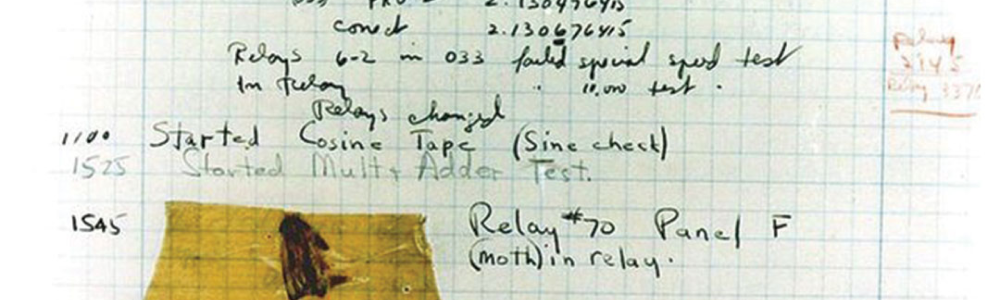 033 PRO 2 2.130476415
conect 2.130676415
Relays 6-2 in 033 failed special speed test
In Relay 10,000 test.
Relays changed
Relay
2145
Relay 3370
1100 Started Cosine Tape (Sine check)
1525 Started Mult+ Adder Test.
1545 Relay #70 Panel F
(moth) in relay.